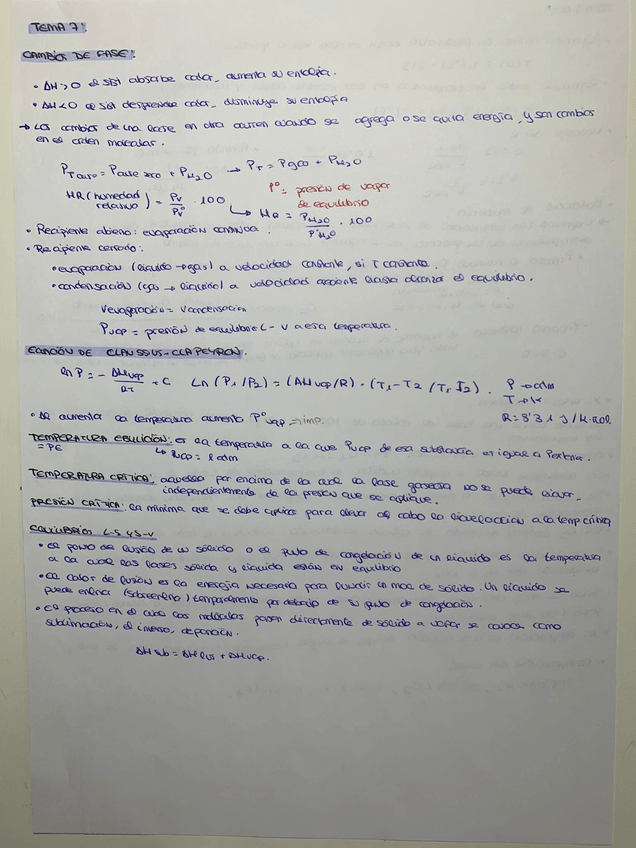 TEMA 7:
CAMBIOS DE FASE:
• ΔH>0 el sist absorbe calor, aumenta su entalpia.
• ΔH<0 el sist desprende calor, disminuye su entalpia
→ Los cambios de una fase en otra ocurren cuando se agrega o se quita energía, y son cambios
en el orden molecular.
P Taire = Paire seco + P H2O → PT = Pgas + P H2O
HR (humedad relativa) = Pv/Pv° · 100
P° = presión de vapor
de equilibrio
HR = P H2O / P° H2O · 100
• Recipiente abierto: evaporación continua.
• Recipiente cerrado:
• evaporación (líquido → gas) a velocidad constante, si T constante.
• condensación (gas → líquido) a velocidad creciente hasta alcanzar el equilibrio.
Vevaporación = Vcondensación
Pvap = presión de equilibrio L-V a esa temperatura.
ECUACIÓN DE CLAUSSUS-CLAPEYRON.
ln P = - ΔHvap/RT + C Ln (P1/P2) = (ΔHvap/R) · (T1-T2 / T1·T2). P→atm
T→K
R = 8'31 J/K·mol
• Si aumenta la temperatura aumenta P°vap → imp.
TEMPERATURA EBULLICIÓN: es la temperatura a la que Pvap de esa substancia es igual a Pexterna.
= PE ↳ Pvap = 1 atm
TEMPERATURA CRÍTICA: aquella por encima de la cual la fase gaseosa no se puede licuar,
independientemente de la presión que se aplique.
PRESIÓN CRÍTICA: la mínima que se debe aplicar para llevar al cabo la licuefacción a la temp crítica
EQUILIBRIOS L-S y S-V
• El punto de fusión de un sólido o el punto de congelación de un líquido es la temperatura
a la cual las fases sólida y líquida están en equilibrio
• El calor de fusión es la energía necesaria para fundir un mol de sólido. Un líquido se
puede enfriar (sobreenfrio) temporalmente por debajo de su punto de congelación.
• El proceso en el cual las moléculas pasan directamente de sólido a vapor se conoce como
sublimación, el inverso, deposición.
ΔHsub = ΔHfus + ΔHvap.